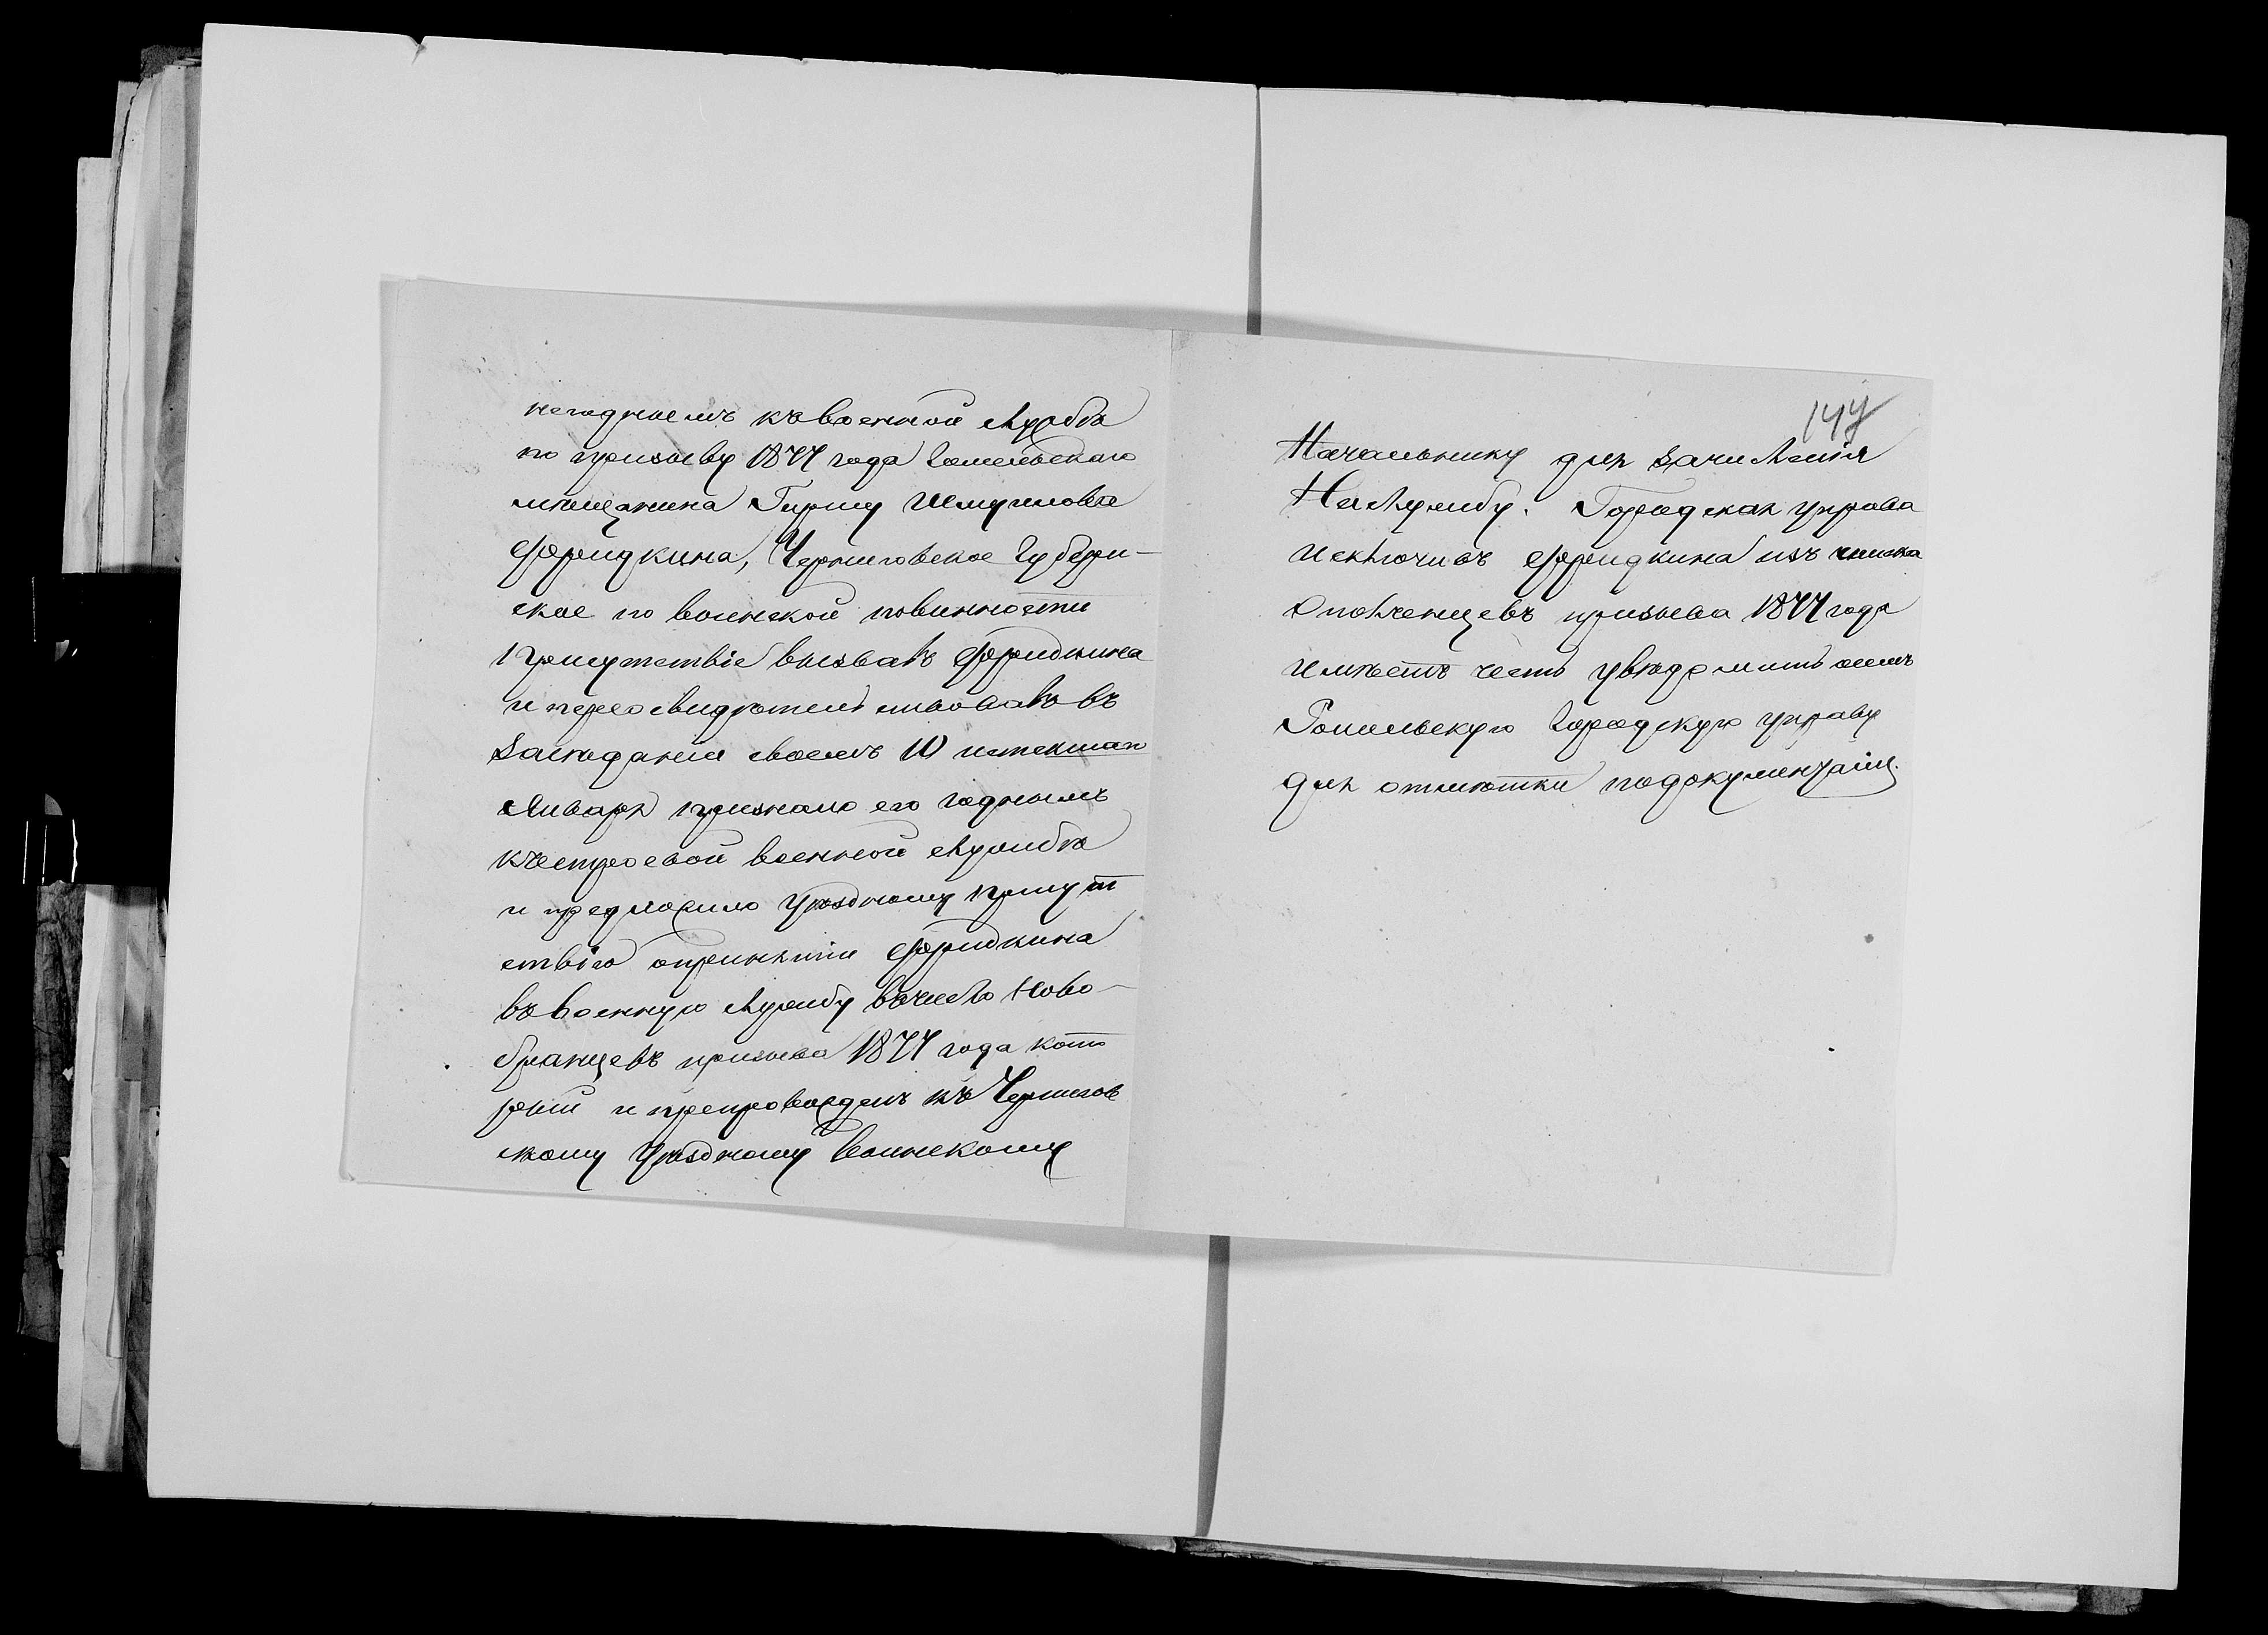 негоднаемъ къ военной службѣ
по призыву 1877 года Гомельскаго
мѣщанина Гиршу Шмуилова
Фрейдкина, Черниговское Губерн-
ское по воинской повинности
присутствіе вызвавъ Фрейдкина
и переосвидѣтельствовавъ въ
Засѣданіи своемъ 10 истекшаго
Января признало его годнымъ
къ строевой военной службѣ
и предложило Уѣздному присут
ствію о принятіи Фрейдкина
въ военную службу въ число Ново-
бранцевъ призыва 1877 года кото
рый и препровожденъ къ Чернигов
скому Уѣздному Воинскому
144
Начальнику для зачисленія
На службу. Городская управа
исключивъ Фрейдкина изъ списка
Ополченцевъ призыва 1877 года
имѣетъ честь увѣдомить о семъ
Гомельскую Городскую управу
для отмѣтки по документамъ.